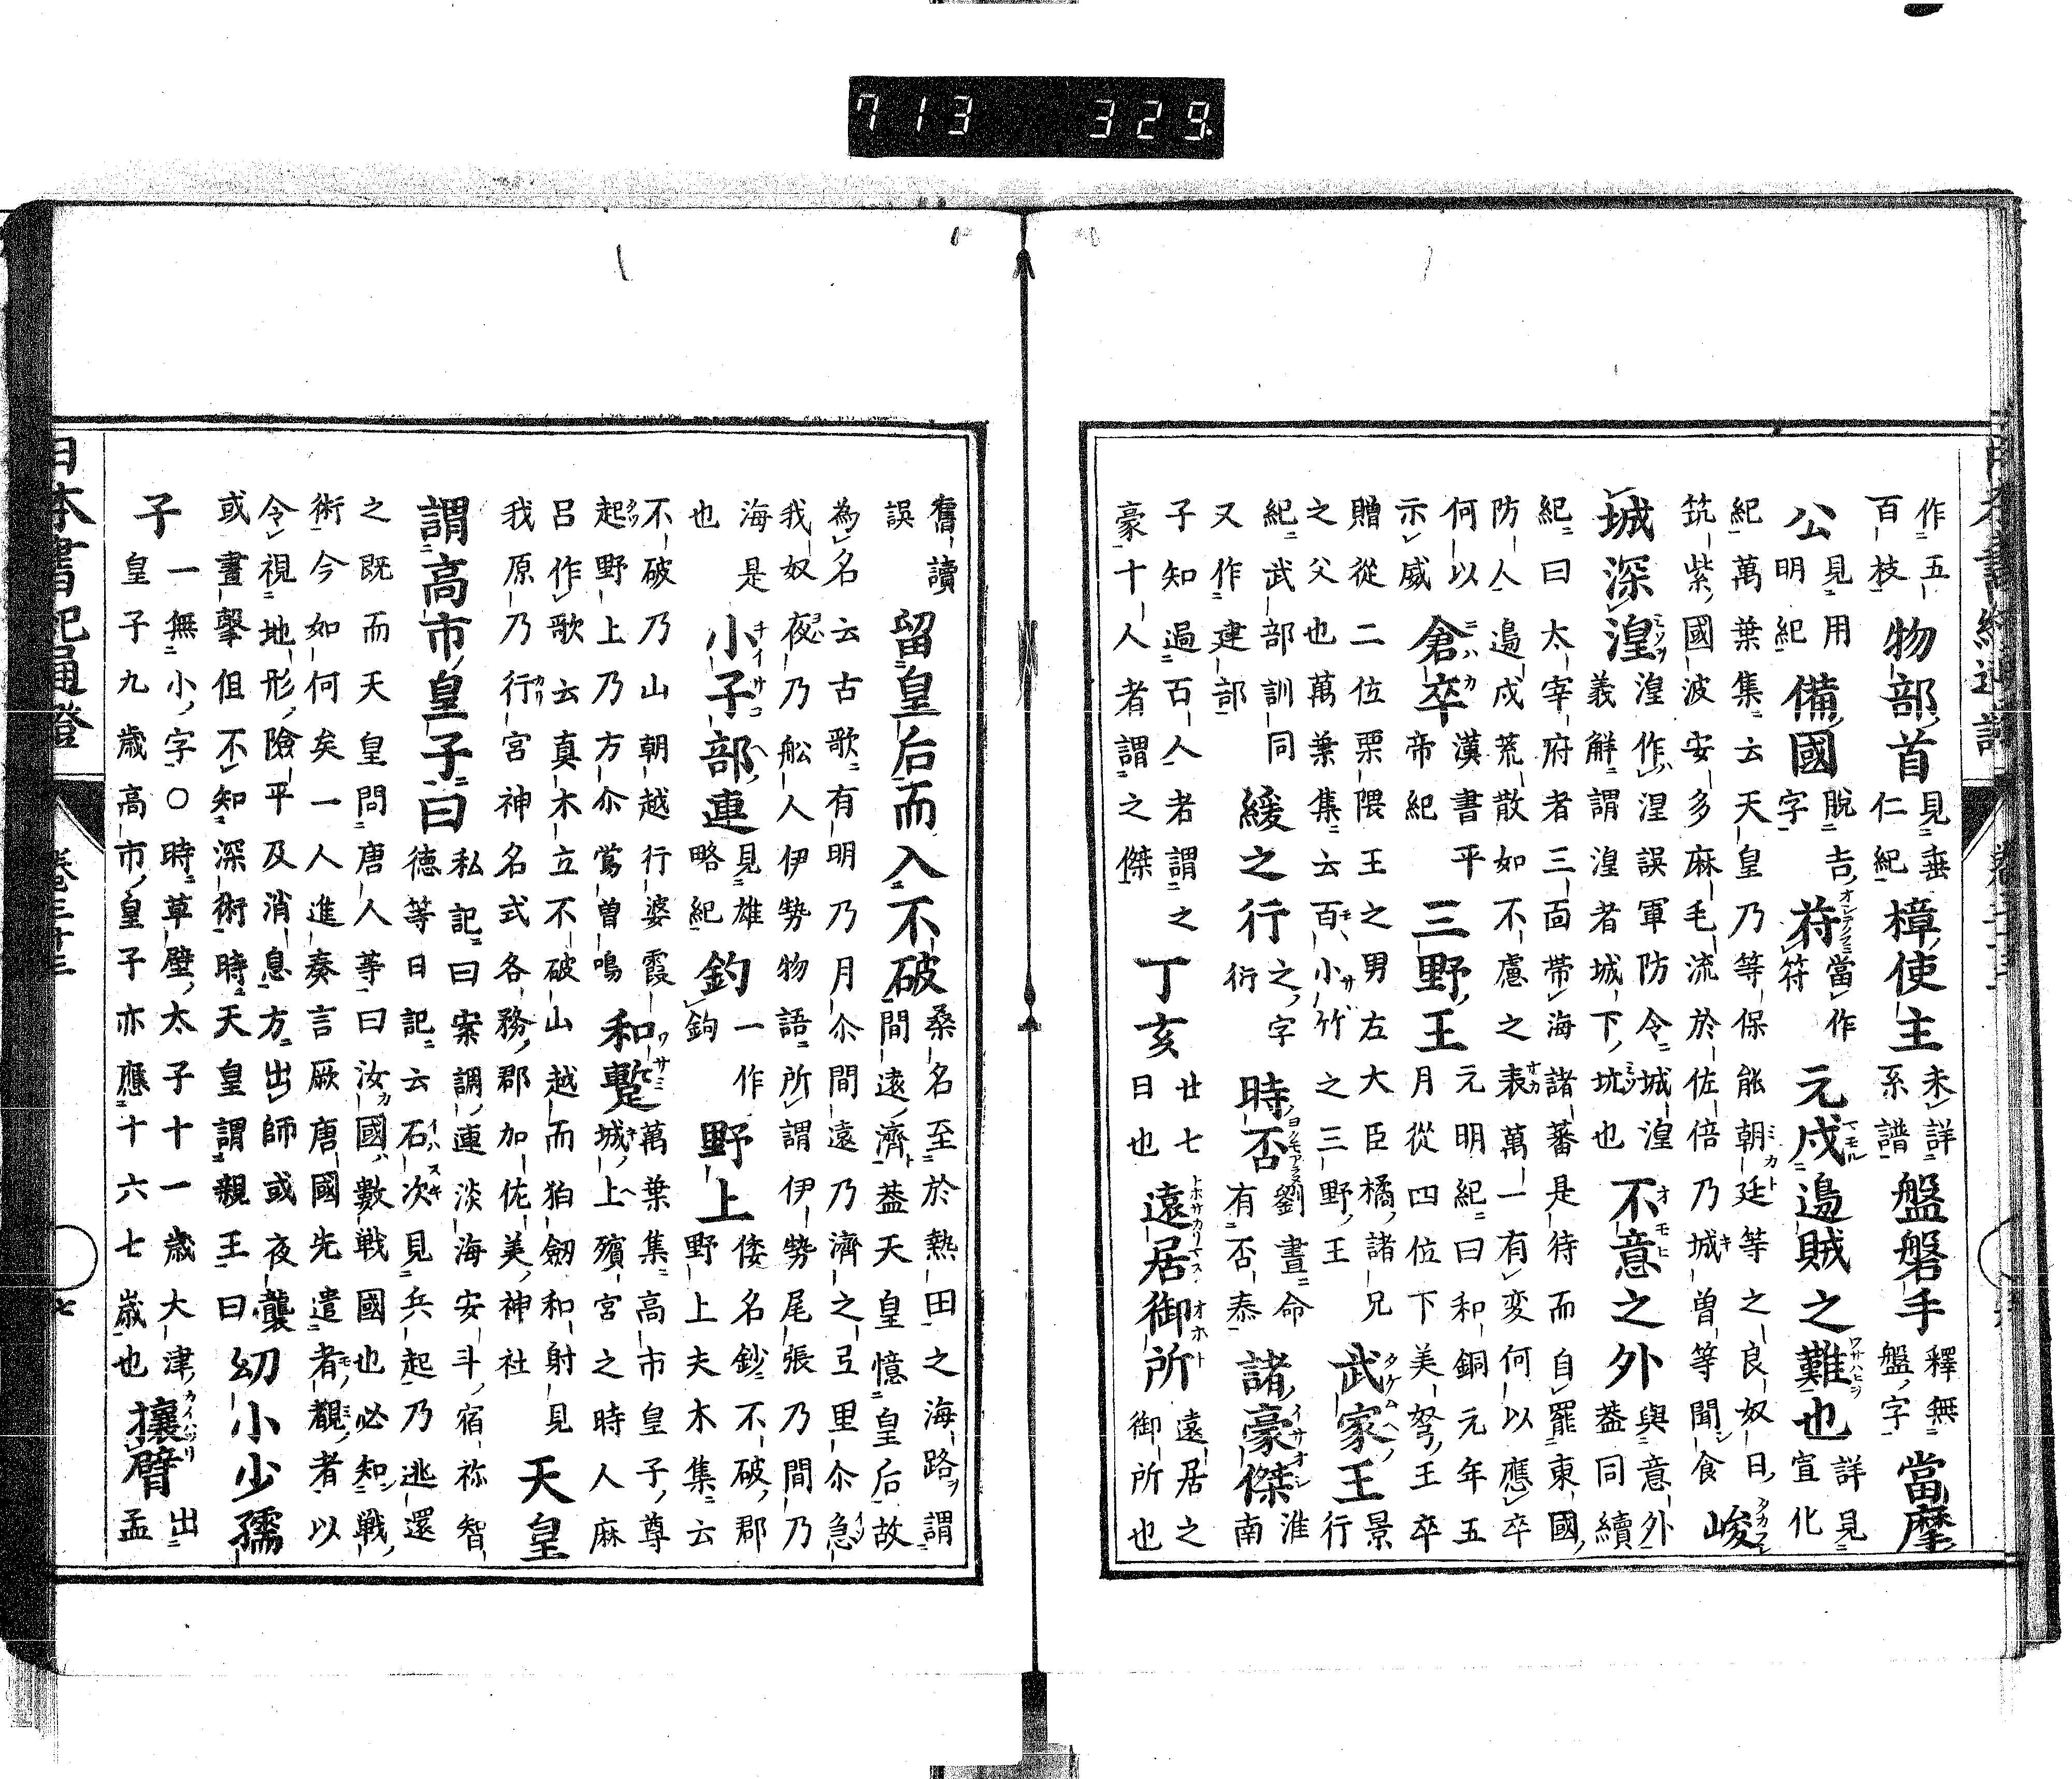 713 329
作五
百枝
物部首
見垂
仁紀
樟使主
未詳
系譜
盤磐手
釋無
盤字
當摩
公
見用
明紀
備國
脫吉
字
苻
當作
符
元戍邊賊之難也
詳見
宣化
紀萬葉集云天皇乃等保能朝廷等之良奴日
筑紫國波安多麻毛流於佐倍乃城曾等聞食
峻
城深湟
湟作湼誤軍防令城湟
義解謂湟者城下坑也
不意之外
與意外
蓋同續
紀曰太宰府者三面帶海諸蕃是待而自罷東國
防人邊戍荒散如不慮之表萬一有変何以應卒
何以
示威
倉卒
漢書平
帝紀
三野王
元明紀曰和銅元年五
月從四位下美弩王卒
贈從二位栗隈王之男左大臣橘諸兄
之父也萬葉集云百小竹之三野王
武家王
景
行
紀武部訓同
又作建部
緩之行
之字
衍
時否
劉晝命
有否泰
諸豪傑
淮
南
子知過百人者謂之
豪十人者謂之傑
丁亥
廿七
日也
遠居御所
遠居之
御所也
舊讀
誤
留皇后而入不破
桑名至於熱田之海路謂
間遠濟蓋天皇憶皇后故
為名云古歌有明乃月尒間遠乃濟之弖里尒急
我奴夜乃舩人伊勢物語所謂伊勢尾張乃間乃
海是
也
小子部連
見雄
略紀
釣
一作
鉤
野上
倭名鈔不破郡
野上夫木集云
不破乃山朝越行婆霞
起野上乃方尒鶯曾鳴
和蹔
萬葉集高市皇子尊
城上殯宮之時人麻
呂作歌云真木立不破山越而狛劔和射見
我原乃行宮神名式各務郡加佐美神社
天皇
謂高市皇子曰
私記曰案調連淡海安斗宿祢智
德等日記云石次見兵起乃逃還
之既而天皇問唐人等曰汝國數戰國也必知戰
術今如何矣一人進奏言厥唐國先遣者覩者以
令視地形險平及消息方出師或夜襲
或晝擊但不知深術時天皇謂親王曰
幼小少孺
子
一無小字○時草壁太子十一歲大津
皇子九歲高市皇子亦應十六七歲也
攘臂
出
孟
日本書紀通證
卷三十三
七